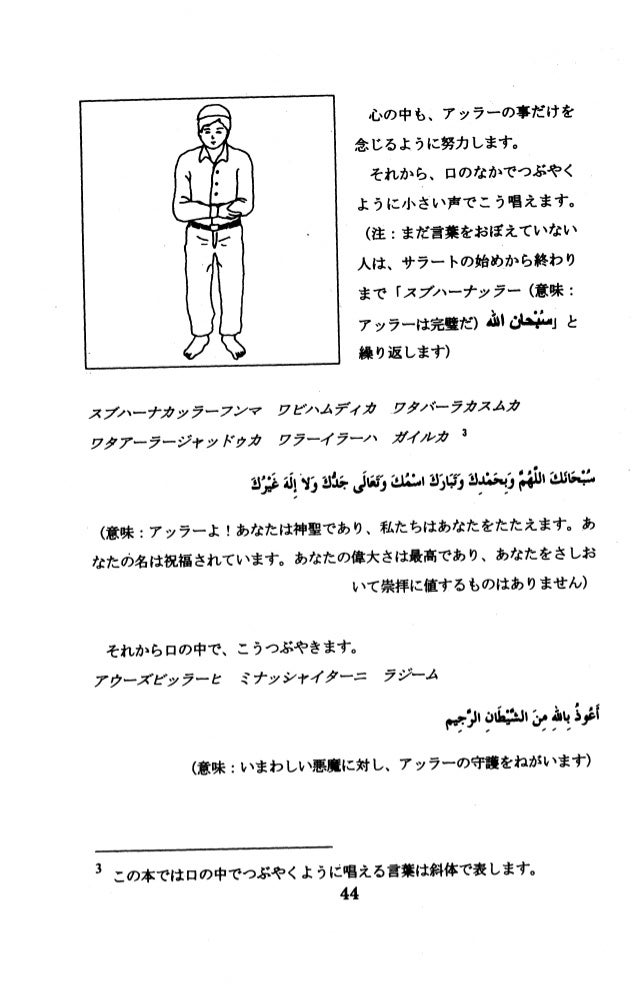 心の中も、アッラーの事だけを
念じるように努力します。
それから、口のなかでつぶやく
ように小さい声でこう唱えます。
(注：まだ言葉をおぼえていない
人は、サラートの始めから終わり
まで「スブハーナッラー（意味：
アッラーは完璧だ）سُبْحان الله」と
繰り返します)
スブハーナカッラーフンマ　ワビハムディカ　ワタバーラカスムカ
ワタアーラージャッドゥカ　ワラーイラーハ　ガイルカ ³
سُبْحَانَكَ اللَّهُمَّ وَبِحَمْدِكَ وَتَبَارَكَ اسْمُكَ وَتَعَالَى جَدُّكَ وَلاَ إِلَهَ غَيْرُكَ
(意味：アッラーよ！あなたは神聖であり、私たちはあなたをたたえます。あ
なたの名は祝福されています。あなたの偉大さは最高であり、あなたをさしお
いて崇拝に値するものはありません)
それから口の中で、こうつぶやきます。
アウーズビッラーヒ　ミナッシャイターニ　ラジーム
أَعُوذُ بِاللهِ مِنَ الشَّيْطَانِ الرَّجِيمِ
(意味：いまわしい悪魔に対し、アッラーの守護をねがいます)
³ この本では口の中でつぶやくように唱える言葉は斜体で表します。
44